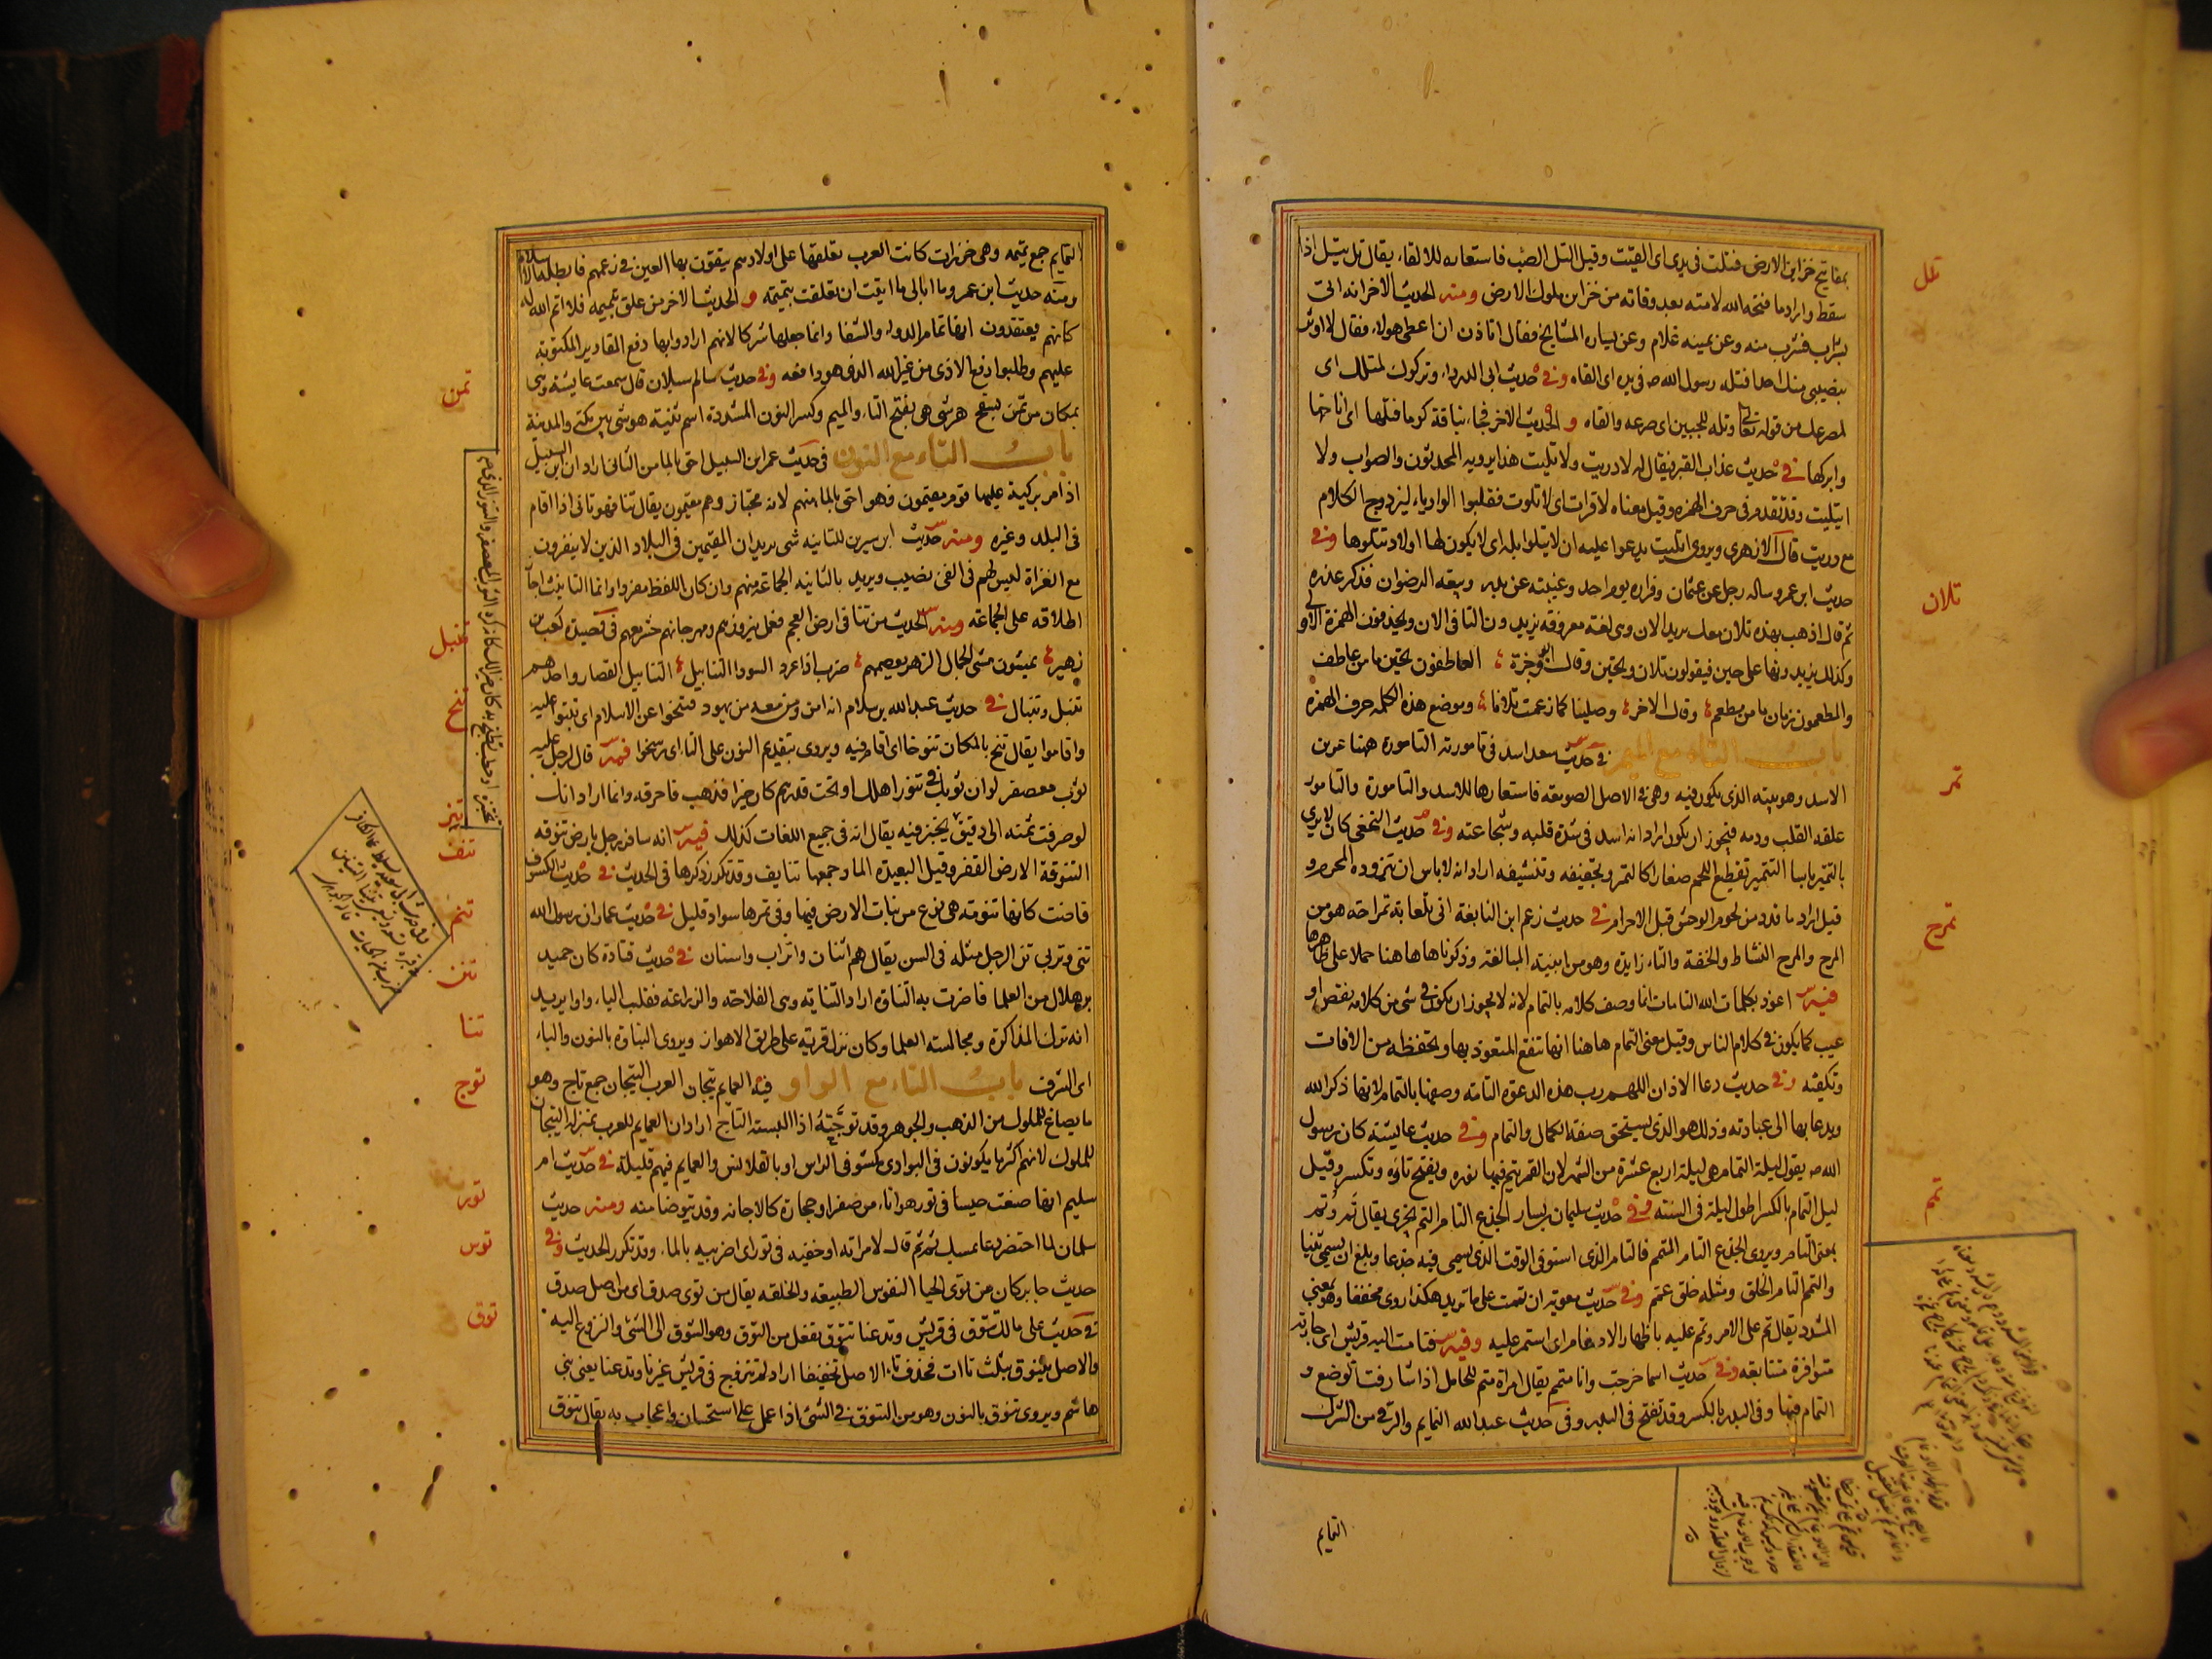 بمفاتيح خزاين الارض فتلت فى يدى اى القيت وقيل التل الصب فاستعاره للالقاء يقال تل يتل اذا
سقط واراد ما فتحه الله لامته بعد وفاته من خزاين ملوك الارض ومنه الحديث الاخر انه اتى
بشراب فشرب منه وعن يمينه غلام وعن يساره المشايخ فقال اتاذن ان اعطى هولاء فقال لا اوثر
بنصيبى منك احدا فتله رسول الله صه فى يده اى القاه وفى حديث ابى الدرداء وتركوك لمتلك اى
لمصرعك من قوله تعالى وتله للجبين اى صرعه والقاه و الحديث الاخر فجاء بناقة كوما فتلها اى اناخها
وابركها فى حديث عذاب القبر فيقال له لا دريت ولا تليت هذا يرويه المحدثون والصواب ولا
ايتليت وقد تقدم فى حرف الهمزه وقيل معناه لا قرات اى لا تلوت فقلبوا الواو ياء ليزدوج الكلام
مع دريت قال الازهرى ويروى اتليت يدعوا عليه ان لا يتلوا بله اى لا يكون لها اولاد تتلوها وفى
حديث ابن عمر وساله رجل عن عثمان وفراره يوم احد وغيبته عن بدر وبيعه الرضوان فذكر عذره
ثم قال اذهب بهذه تلان معك يريد الان وهى لغة معروفة يزيدون التا فى الان ويحذفون الهمزة الاولى
وكذلك يزيدونها على حين فيقولون تلان وتحين وقال ابو وجزة العاطفون تحين ما من عاطف
والمطعمون زمان ما من مطعم وقال الاخر وصلينا كما زعمت تلانا وموضع هذه الكلمه حرف الهمزه
باب التاء مع الميم فى حديث سعد اسد فى تامورته التامورة ههنا عرين
الاسد وهو بيته الذى يكون فيه وهى فى الاصل الصومعه فاستعارها للاسد والتامورة والتامور
علقه القلب ودمه فيجوز ان يكون اراد انه اسد فى شدة قلبه وشجاعته وفى حديث النخعى كان لا يرى
بالتتمير باسا التتمير تقطيع اللحم صغارا كالتمر وتجفيفه وتنشيفه اراد انه لا باس ان يتزوده المحرم و
قيل اراد ما قدد من لحوم الوحش قبل الاحرام فى حديث زعم ابن النابغة انى تلعابة تمراحة هو من
المرح والمرح النشاط والخفة والتاء زايدة وهو من ابنية المبالغة وذكرناها هاهنا حملا على ظاهرها
فيه اعوذ بكلمات الله التامات انما وصف كلامه بالتمام لانه لا يجوز ان يكون فى شى من كلامه نقص او
عيب كما يكون فى كلام الناس وقيل معنى التمام هاهنا انها تنفع المتعوذ بها وتحفظه من الافات
وتكفيه وفى حديث دعا الاذان اللهم رب هذه الدعوة التامة وصفها بالتمام لانها ذكر الله
ويدعا بها الى عبادته وذلك هو الذى يستحق صفة الكمال والتمام وفى حديث عايشة كان رسول
الله صه يقول ليلة التمام هى ليلة اربع عشرة من الشهر لان القمر يتم فيها نوره ويفتح تاؤه وتكسر وقيل
ليل التمام بالكسر اطول ليلة فى السنة وفى حديث سليمان بن يسار الجذع التام التم يجزى يقال تم وتم
بمعنى التام ويروى الجذع التام المتمم فالتام الذى استوفى الوقت الذى يسمى فيه جذعا وبلغ ان يسمى ثنيا
والتمم التام الخلق ومثله خلق عمم وفى حديث معوية ان تممت على ما تريد هكذا روى مخففا وهو بمعنى
المشدد يقال تم على الامر وتمم عليه باظهار الادغام اى استمر عليه وفيه فتامت اليه قريش اى جاته
متوافرة متتابعه وفى حديث اسما خرجت وانا متم يقال امراة متم للحامل اذا شارفت الوضع و
التمام فيها وفى البدر بالكسر وقد تفتح فى البدر وفى حديث عبد الله التمايم والرقى من الشرك
التمايم
تلل
تلان
تمر
تمرح
تمم
التمايم جمع تميمه وهى خرزات كانت العرب تعلقها على اولادهم يتقون بها العين فى زعمهم فابطله الاسلام
ومنه حديث ابن عمر وما ابالى ما اتيت ان تعلقت بتميمة و الحديث الاخر من علق تميمه فلا اتم الله له
كانهم يعتقدون انها تمام الدواء والشفا وانما جعلها شركا لانهم ارادوا بها دفع المقادير المكتوبة
عليهم وطلبوا دفع الاذى من غير الله الذى هو دافعه وفى حديث سالم سبلان قال سمعت عايشة وهى
بمكان من تمن بسفح هرشى هى بفتح التاء والميم وكسر النون المشددة اسم ثنية هرشى بين مكة والمدينة
باب التاء مع النون فى حديث عمر ابن السبيل احق بالما من التانى اراد ان ابن السبيل
اذا مر بركية عليها قوم مقيمون فهو احق بالما منهم لانه مجتاز وهم مقيمون يقال تنا فهو تانى اذا اقام
فى البلد وغيره ومنه حديث ابن سيرين للتانيه شى يريد ان المقيمين فى البلاد الذين لا ينفرون
مع الغزاة ليس لهم فى الفى نصيب ويريد بالتانيه الجماعة منهم وان كان اللفظ مفردا وانما التانيث اجاز
اطلاقه على الجماعة ومنه الحديث من تنا فى ارض العجم فعمل نيروزهم ومهرجانهم حشر معهم فى قصيدة كعب بن
زهير يمشون مشى الجمال الزهر يعصمهم ضرب اذا عرد السود التنابيل التنابيل القصار واحدهم
تنبل وتنبال فى حديث عبد الله بن سلام انه امن ومن معه من يهود فتنخوا عن الاسلام اى ثبتوا عليه
واقاموا يقال تنخ بالمكان تنوخا اى اقام فيه ويروى بتقديم النون على التا اى رسخوا فيه قال لرجل عليه
ثوب معصفر لو ان ثوبك فى تنور اهلك او تحت قدرهم كان خيرا فذهب فاحرقه وانما اراد انك
لو صرفت ثمنه الى دقيق تخبز فيه يقال انه فى جميع اللغات كذلك فيه انه سافر رجل بارض تنوفه
التنوفة الارض القفر وقيل البعيدة الما وجمعها تنايف وقد تكرر ذكرها فى الحديث فى حديث الكسوف
فاضت كانها تنومة هى نوع من نبات الارض فيها وفى ثمرها سواد قليل فى حديث عمار ان رسول الله
تنى وتربى تن الرجل مثله فى السن يقال هم اتنان واتراب واسنان فى حديث قتادة كان حميد
بن هلال من العلما فاضرت به التناوة اراد التناية وهى الفلاحة والزراعة فقلب الياء واوا يريد
انه ترك المذاكرة ومجالسة العلما وكان نزل قرية على طريق الاهواز ويروى النباوة بالنون والباء
اى الشرف باب التاء مع الواو فيه العمايم تيجان العرب التيجان جمع تاج وهو
ما يصاغ للملوك من الذهب والجوهر وقد توجته اذا البسته التاج اراد ان العمايم للعرب بمنزلة التيجان
للملوك لانهم اكثر ما يكونون فى البوادى مكشوفى الراس او بالقلانس والعمايم فيهم قليلة فى حديث ام
سليم انها صنعت حيسا فى تور هو اناء من صفر او حجارة كالاجانه وقد يتوضا منه ومنه حديث
سلمان لما احتضر دعا بمسك ثم قال لامراته اوخفيه فى تور اى اضربيه بالماء وقد تكرر الحديث وفى
حديث جابر كان من توسى الحيا التوس الطبيعه والخلقه يقال من توس صدق اى من اصل صدق
فى حديث على مالك تتوق فى قريش وتدعنا تتوق تفعل من التوق وهو الشوق الى الشى والنزوع اليه
والاصل تتتوق بثلث تاات فحذف تاء الاصل تخفيفا اراد لم تتزوج فى قريش غيرنا وتدعنا يعنى بنى
هاشم ويروى تنوق بالنون وهو من التنوق فى الشى اذا عمل على استحسان واعجاب به يقال تنوق
تمن
تنبل
تنخ
تنر
تنف
تنم
تنن
تنا
توج
تور
توس
توق